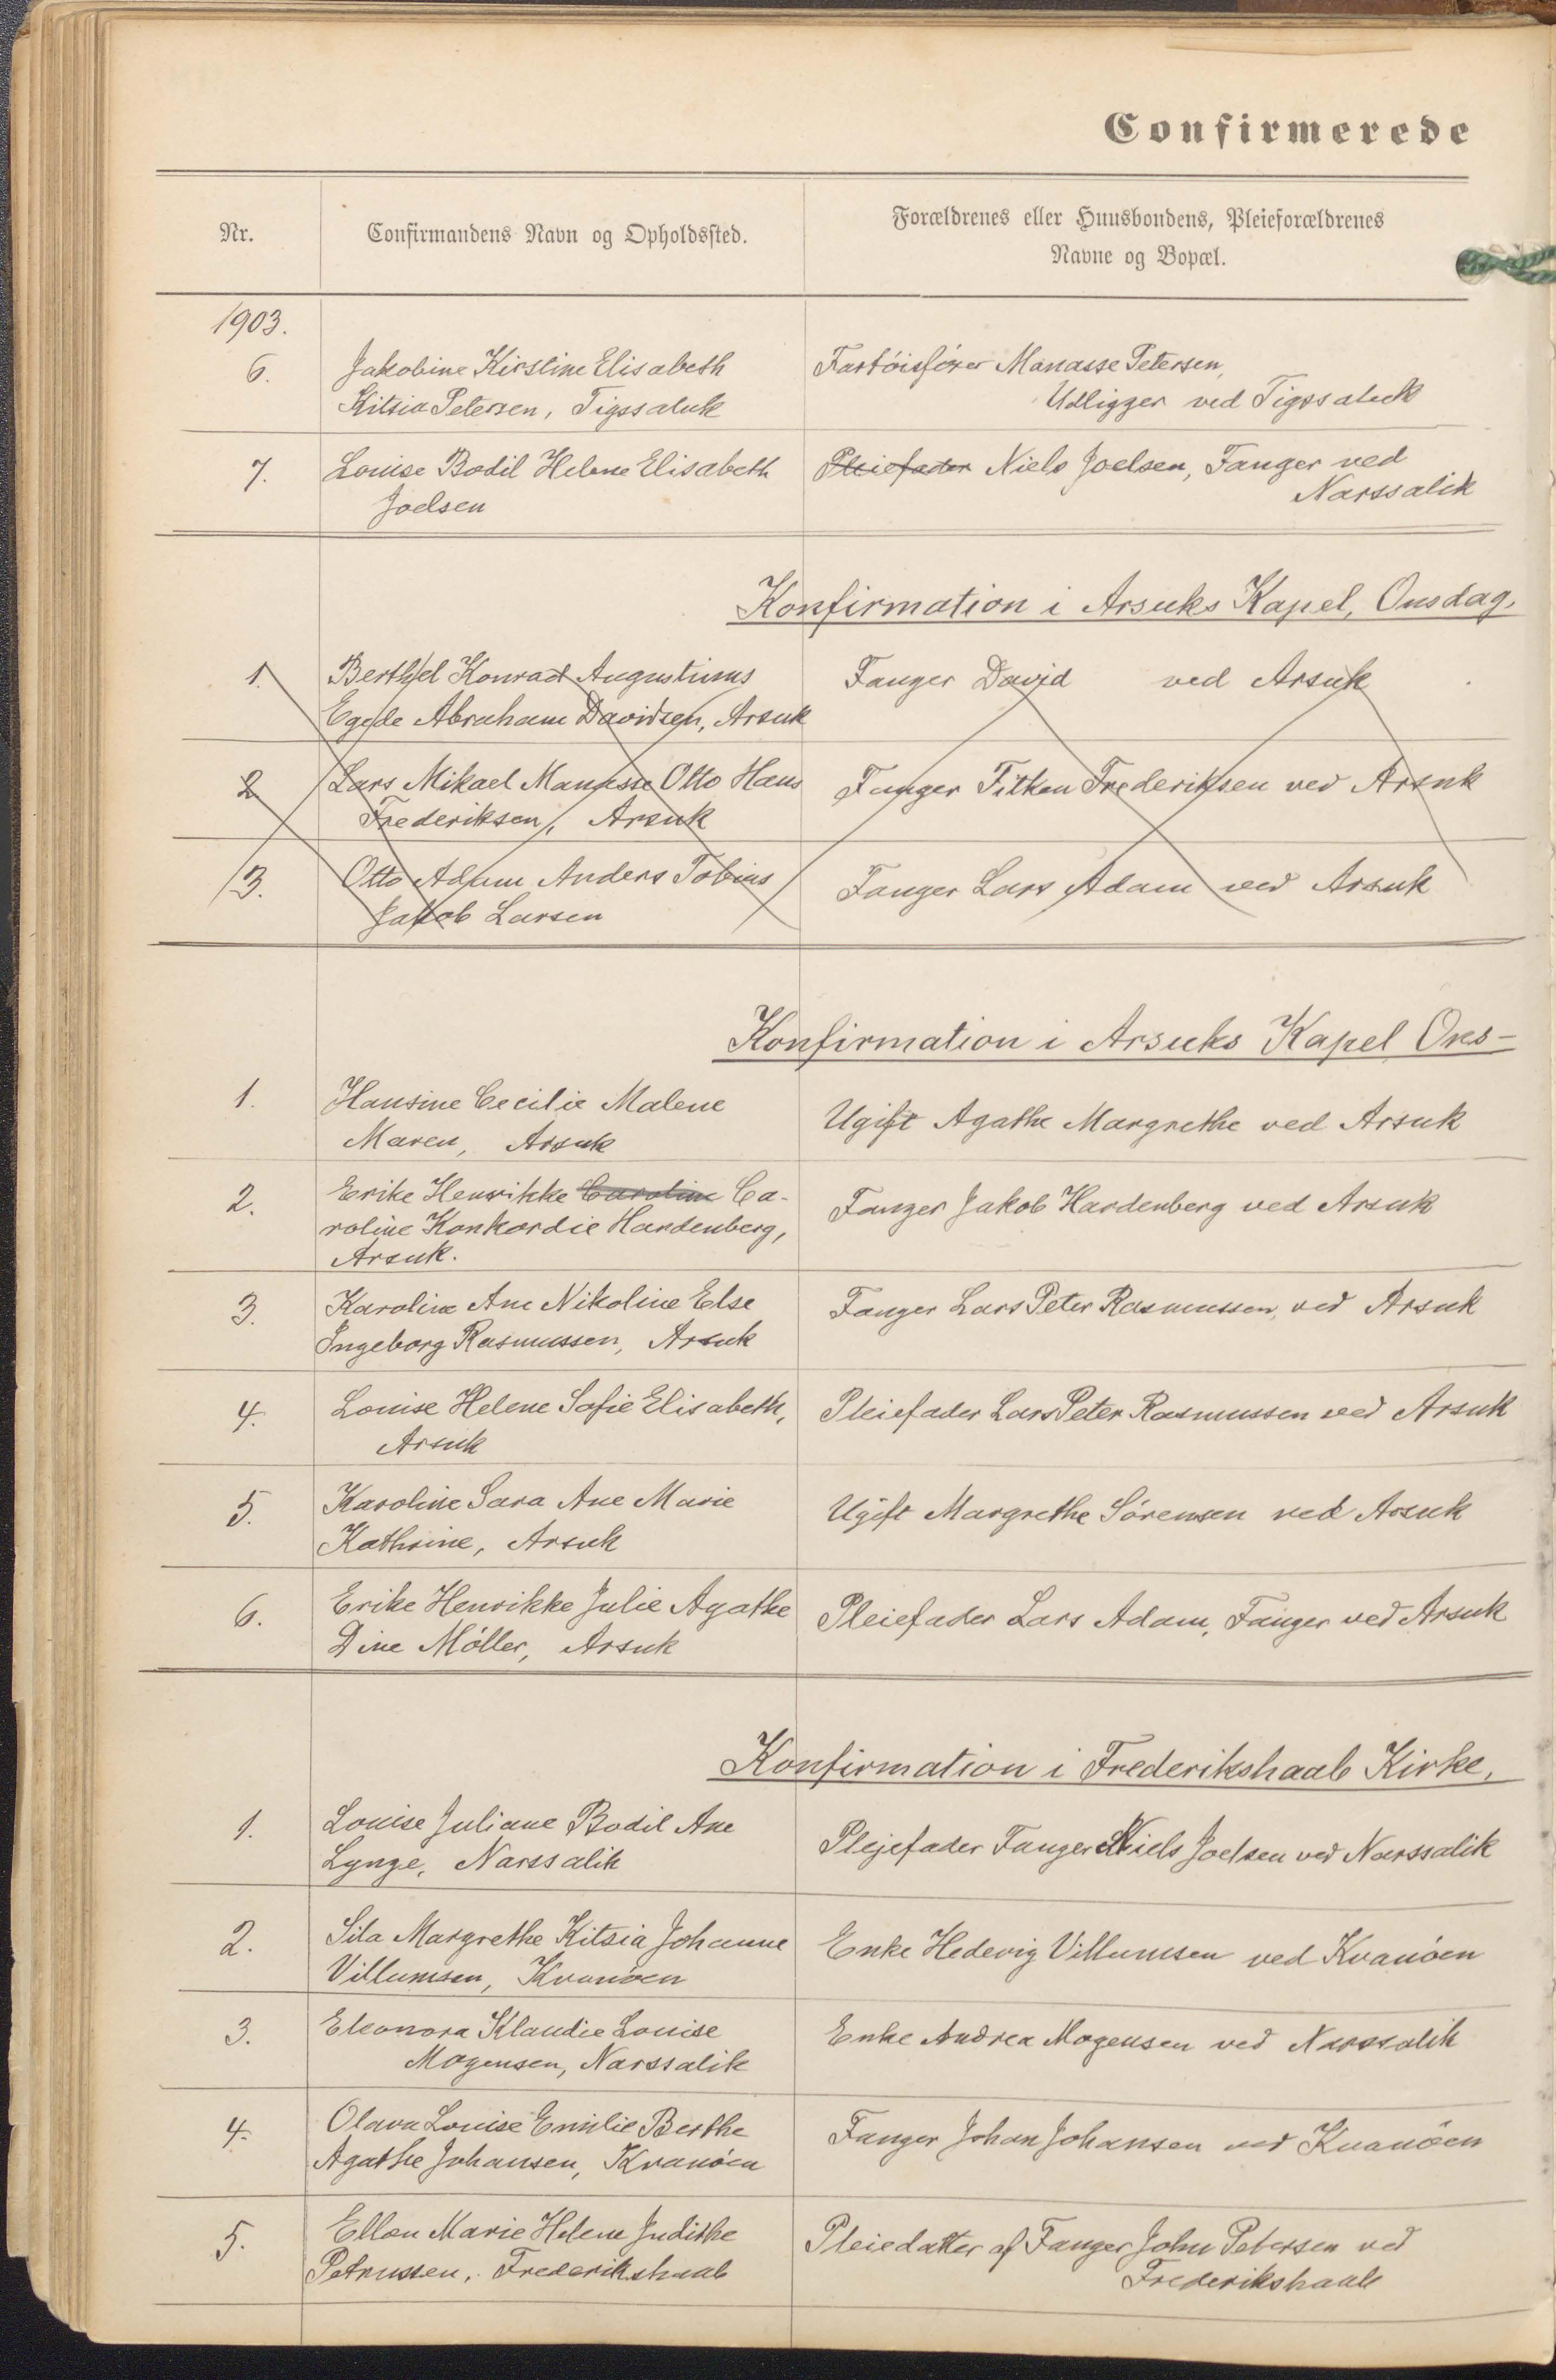 Confirmerede
Nr.
Confirmandens Navn og Opholdssted.
Forældrenes eller Huusbondens, Pleieforældrenes
Navne og Bopæl.
1903.
6.
Jakobine Kirstine Elisabeth
Kitsia Petersen, Tigssaluk
Fartöisförer Manasse Petersen,
Udligger ved Tigssaluk
7.
Louise Bodil Helene Elisabeth
Joelsen
Pleiefader Niels Joelsen, Fanger ved
Narssalik
Konfirmation i Arsuks Kapel, Onsdag,
1.
Berthel Konrad Augustinus
Egede Abraham Davidsen, Arsuk
Fanger David ved Arsuk
2
Lars Mikael Manasse Otto Hans
Frederiksen, Arsuk
Fanger Titken Frederiksen ved Arsuk
3.
Otto Adam Anders Tobias
Jakob Larsen
Fanger Lars Adam ved Arsuk
Konfirmation i Arsuks Kapel Ons-
1.
Hansine Cecilie Malene
Maren, Arsuk
Ugift Agathe Margrethe ved Arsuk
2.
Erike Henrikke Caroline Ca-
roline Konkordie Hardenberg,
Arsuk.
Fanger Jakob Hardenberg ved Arsuk
3.
Karoline Ane Nikoline Else
Ingeborg Rasmussen, Arsuk
Fanger Lars Peter Rasmussen, ved Arsuk
4.
Louise Helene Sofie Elisabeth,
Arsuk
Pleiefader Lars Peter Rasmussen ved Arsuk
5.
Karoline Sara Ane Marie
Kathrine, Arsuk
Ugift Margrethe Sörensen ved Arsuk
6.
Erike Henrikke Julie Agathe
Dine Möller, Arsuk
Pleiefader Lars Adam, Fanger ved Arsuk
Konfirmation i Frederikshaab Kirke,
1.
Louise Juliane Bodil Ane
Lynge, Narssalik
Plejefader Fanger Niels Joelsen ved Narssalik
2.
Sila Margrethe Kitsia Johanne
Villumsen, Kvanöen
Enke Hedevig Villumsen ved Kvanöen
3.
Eleonora Klaudie Louise
Mogensen, Narssalik
Enke Andrea Mogensen ved Narssalik
4.
Olava Louise Emilie Berthe
Agathe Johansen, Kvanöen
Fanger Johan Johansen ved Kvanöen
5.
Ellen Marie Helene Judithe
Petrussen, Frederikshaab
Pleiedatter af Fanger John Petersen ved
Frederikshaab